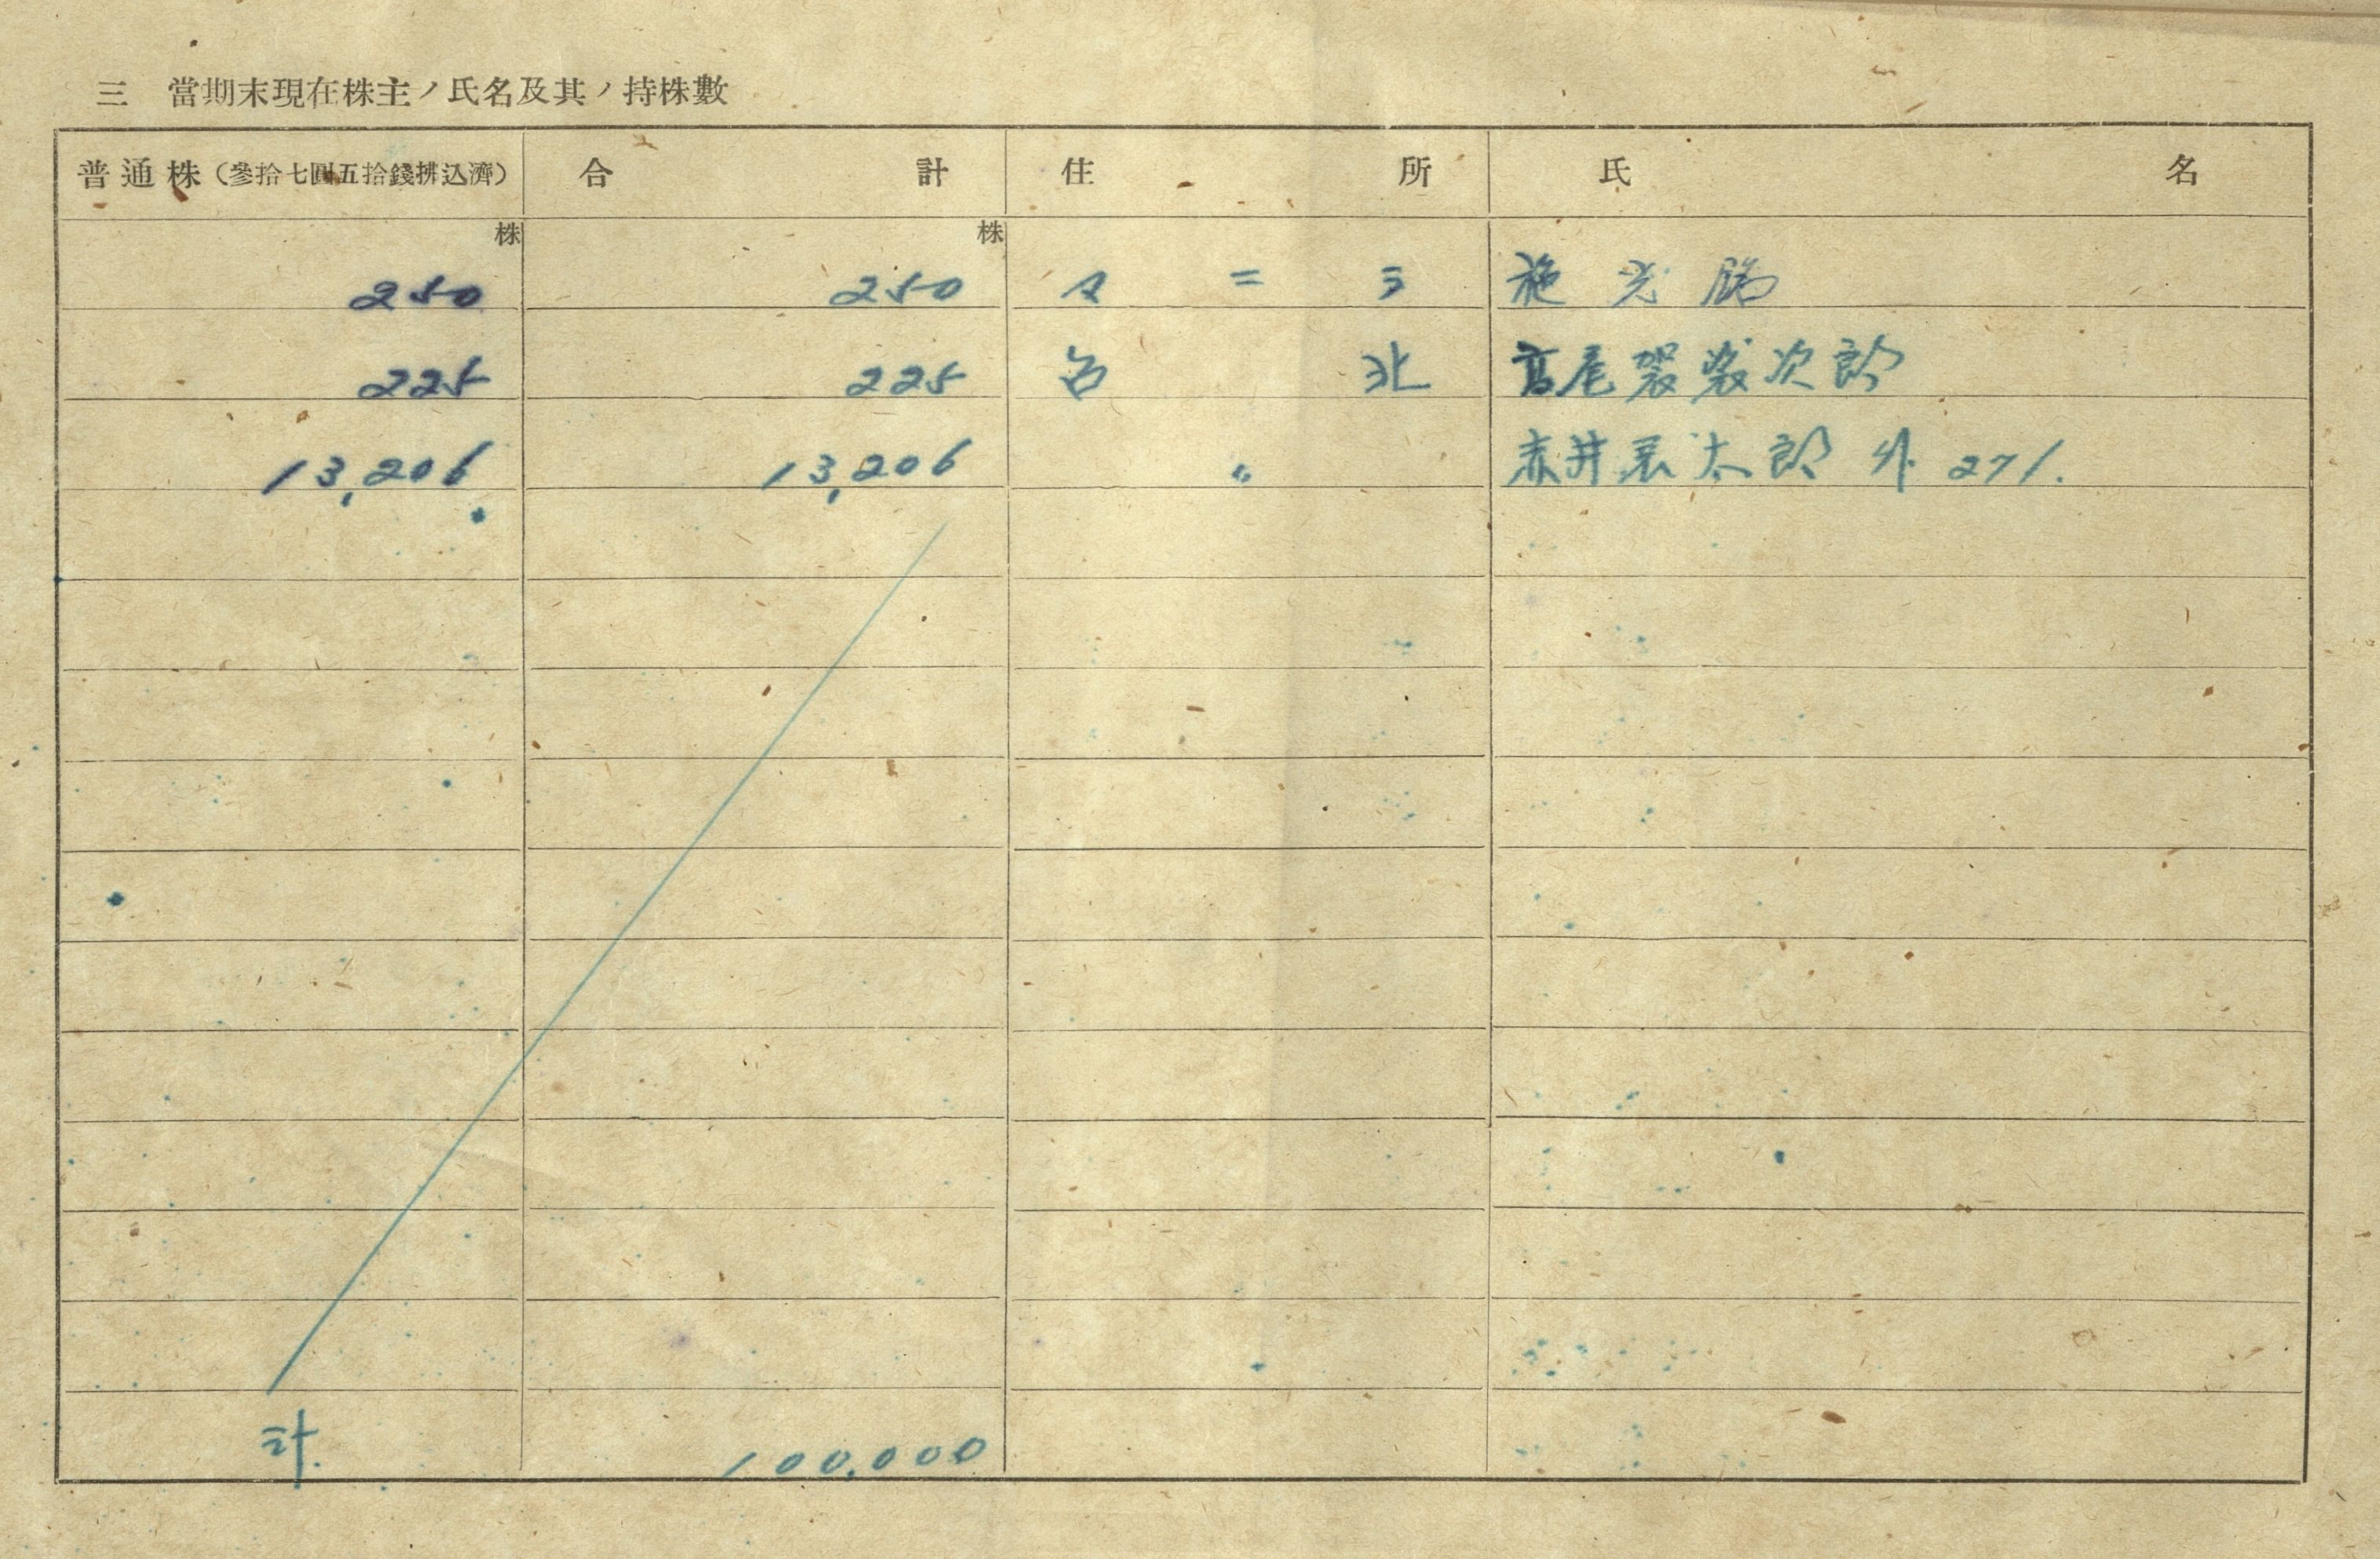 三 當期末現在株主ノ氏名及其ノ持株數
普通株(參拾七圓五拾錢拂込濟) 合計 住所 氏名
株 株
250 250 施光
225 225 台北 高尾袈裟次郎
13,206 13,206 〃 赤井 太郎 外 271.
計. 100,000